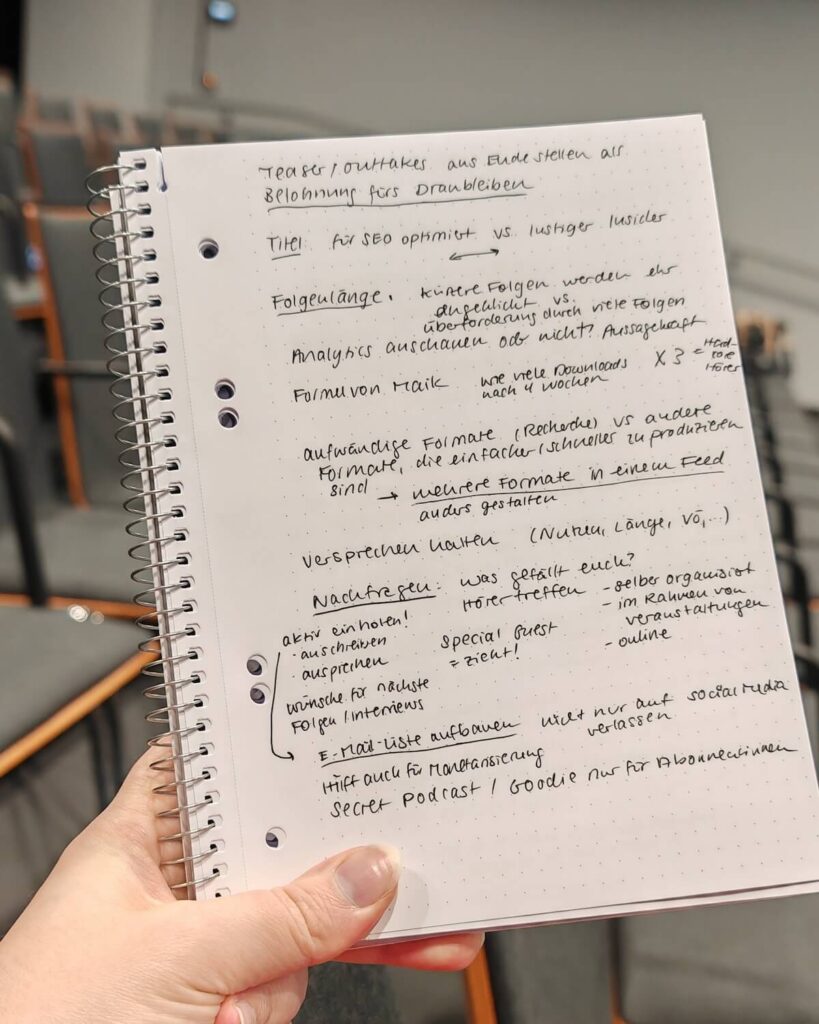 Teaser / Outtakes aus Ende stellen als
Belohnung fürs Dranbleiben
Titel für SEO optimiert vs. lustiger Insider
Folgenlänge. kürzere Folgen werden ehr
angeklickt vs.
Überforderung durch viele Folgen
Analytics anschauen oder nicht? Aussagekraft
Formel von Maik wie viele Downloads
nach 4 Wochen x 3 = Hard-
core
Hörer
aufwändige Formate (Recherche) vs andere
Formate, die einfacher/schneller zu produzieren
sind → mehrere Formate in einem Feed
anders gestalten
Versprechen halten (Nutzen, Länge, VÖ,...)
Nachfragen: Was gefällt euch?
aktiv einholen!
- anschreiben
- ansprechen
Hörertreffen - selber organisiert
- im Rahmen von
Veranstaltungen
- online
Special Guest
= zieht!
Wünsche für nächste
Folgen / Interviews
E-Mail-Liste aufbauen nicht nur auf Social Media
verlassen
Hilft auch für Monetarisierung
Secret Podcast / Goodie nur für Abonnentinnen